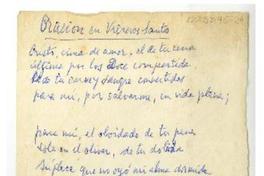 Oración en Viernes Santo
Cristo, cima de amor, el de tu cena
última por los doce compartida
tu carne y sangre convertidas
para mí, por salvarme, en vida plena;
para mí, el olvidado de tu pena
sola en el olivar, de tu
súplica que no oyó mi alma dormida